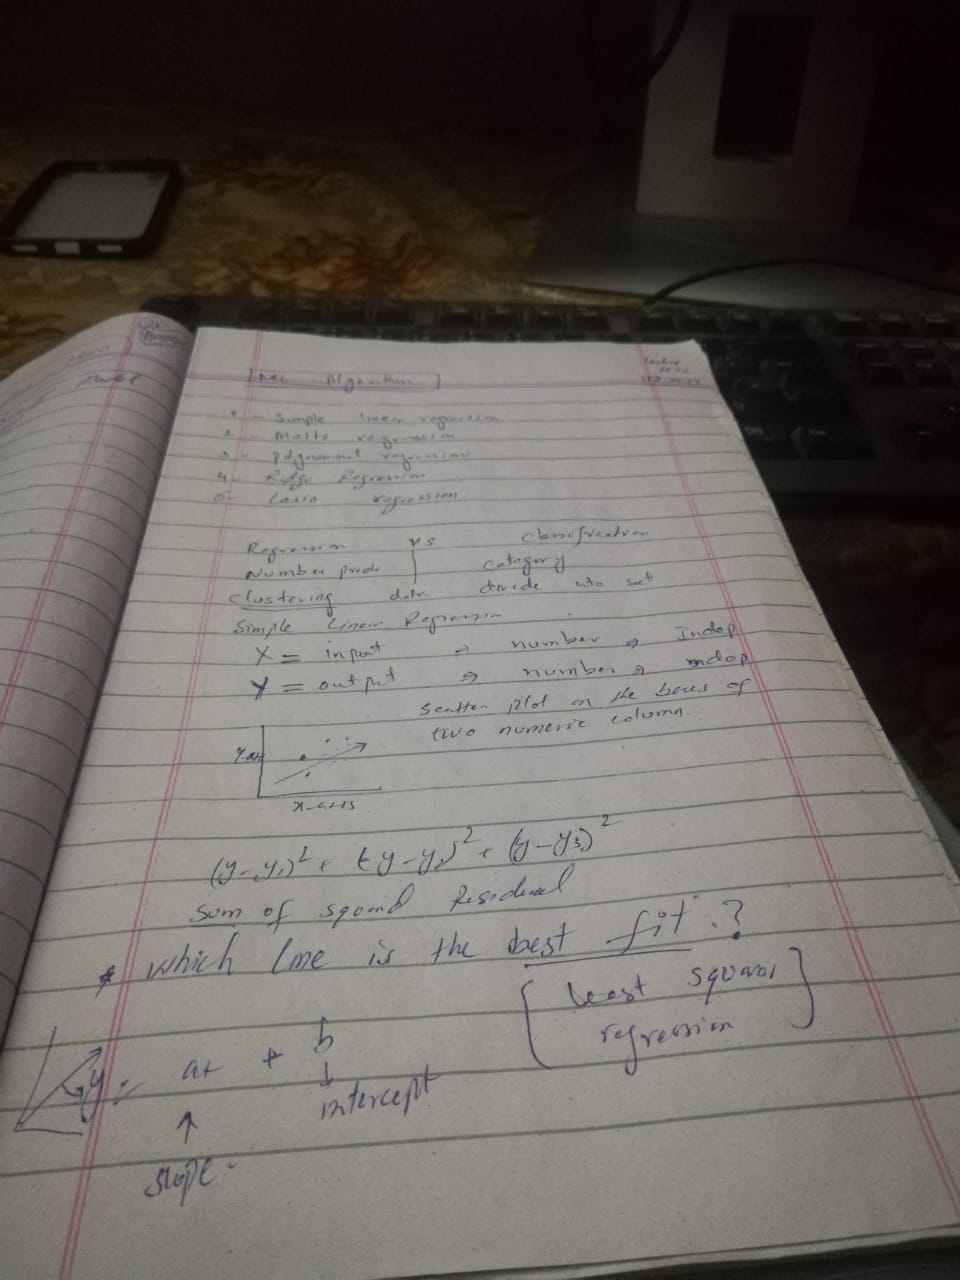 Algorithm
1 - Simple linear regression
2 - Multi regression
3 - polynomial regression
4 - Ridge Regression
5 - Lasso regression
Regression vs Classification
Number prede category
Clustering data devide into
Simple Linear Regression
X = input ⇒ number ⇒ Indep
Y = output ⇒ number ⇒ indep
Scatter plot on the bases of
two numeric column.
x-axis
(y-y1)² + (y-y2)² + (y-y3)²
Sum of Residual
* which line is the best fit ?
[ least squares
regression ]
y = ax + b
intercept
slope